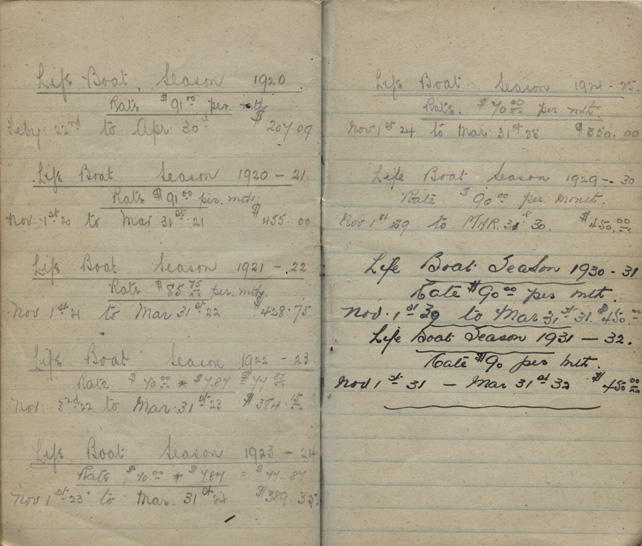 Life Boat. Season 1920
Rate $91.00 per mth
Feby. 22nd to Apr. 30th $207.09
Life Boat Season 1920-21
Rate $91.00 per mth.
Nov 1st 20 to Mar 31st 21 $455.00
Life Boat Season 1921-22
Rate $85.75 per. mth
Nov 1st 21 to Mar 31st 22 $428.75
Life Boat Season 1922-23
Rate $70.00 * $7.87 $77.87
Nov. 3rd 22 to Mar. 31st 23 $384.15
Life Boat Season 1923-24
Rate $70.00 * $7.87 = $77.87
Nov 1st 23 to Mar. 31st 24 $389.35
Life Boat Season 1924-25
Rate. $70.00 per mth
Nov 1st 24 to Mar 31st 25 $350.00
Life Boat Season 1929-30
Rate $90.00 per Month.
Nov 1st 29 to MAR. 31st 30. $450.00
Life Boat Season 1930-31
Rate $90.00 per mth.
Nov. 1st 30 to Mar. 31st 31. $450.00
Life Boat Season 1931-32.
Rate $90 per mth.
Nov 1st 31 - Mar 31st 32 $450.00